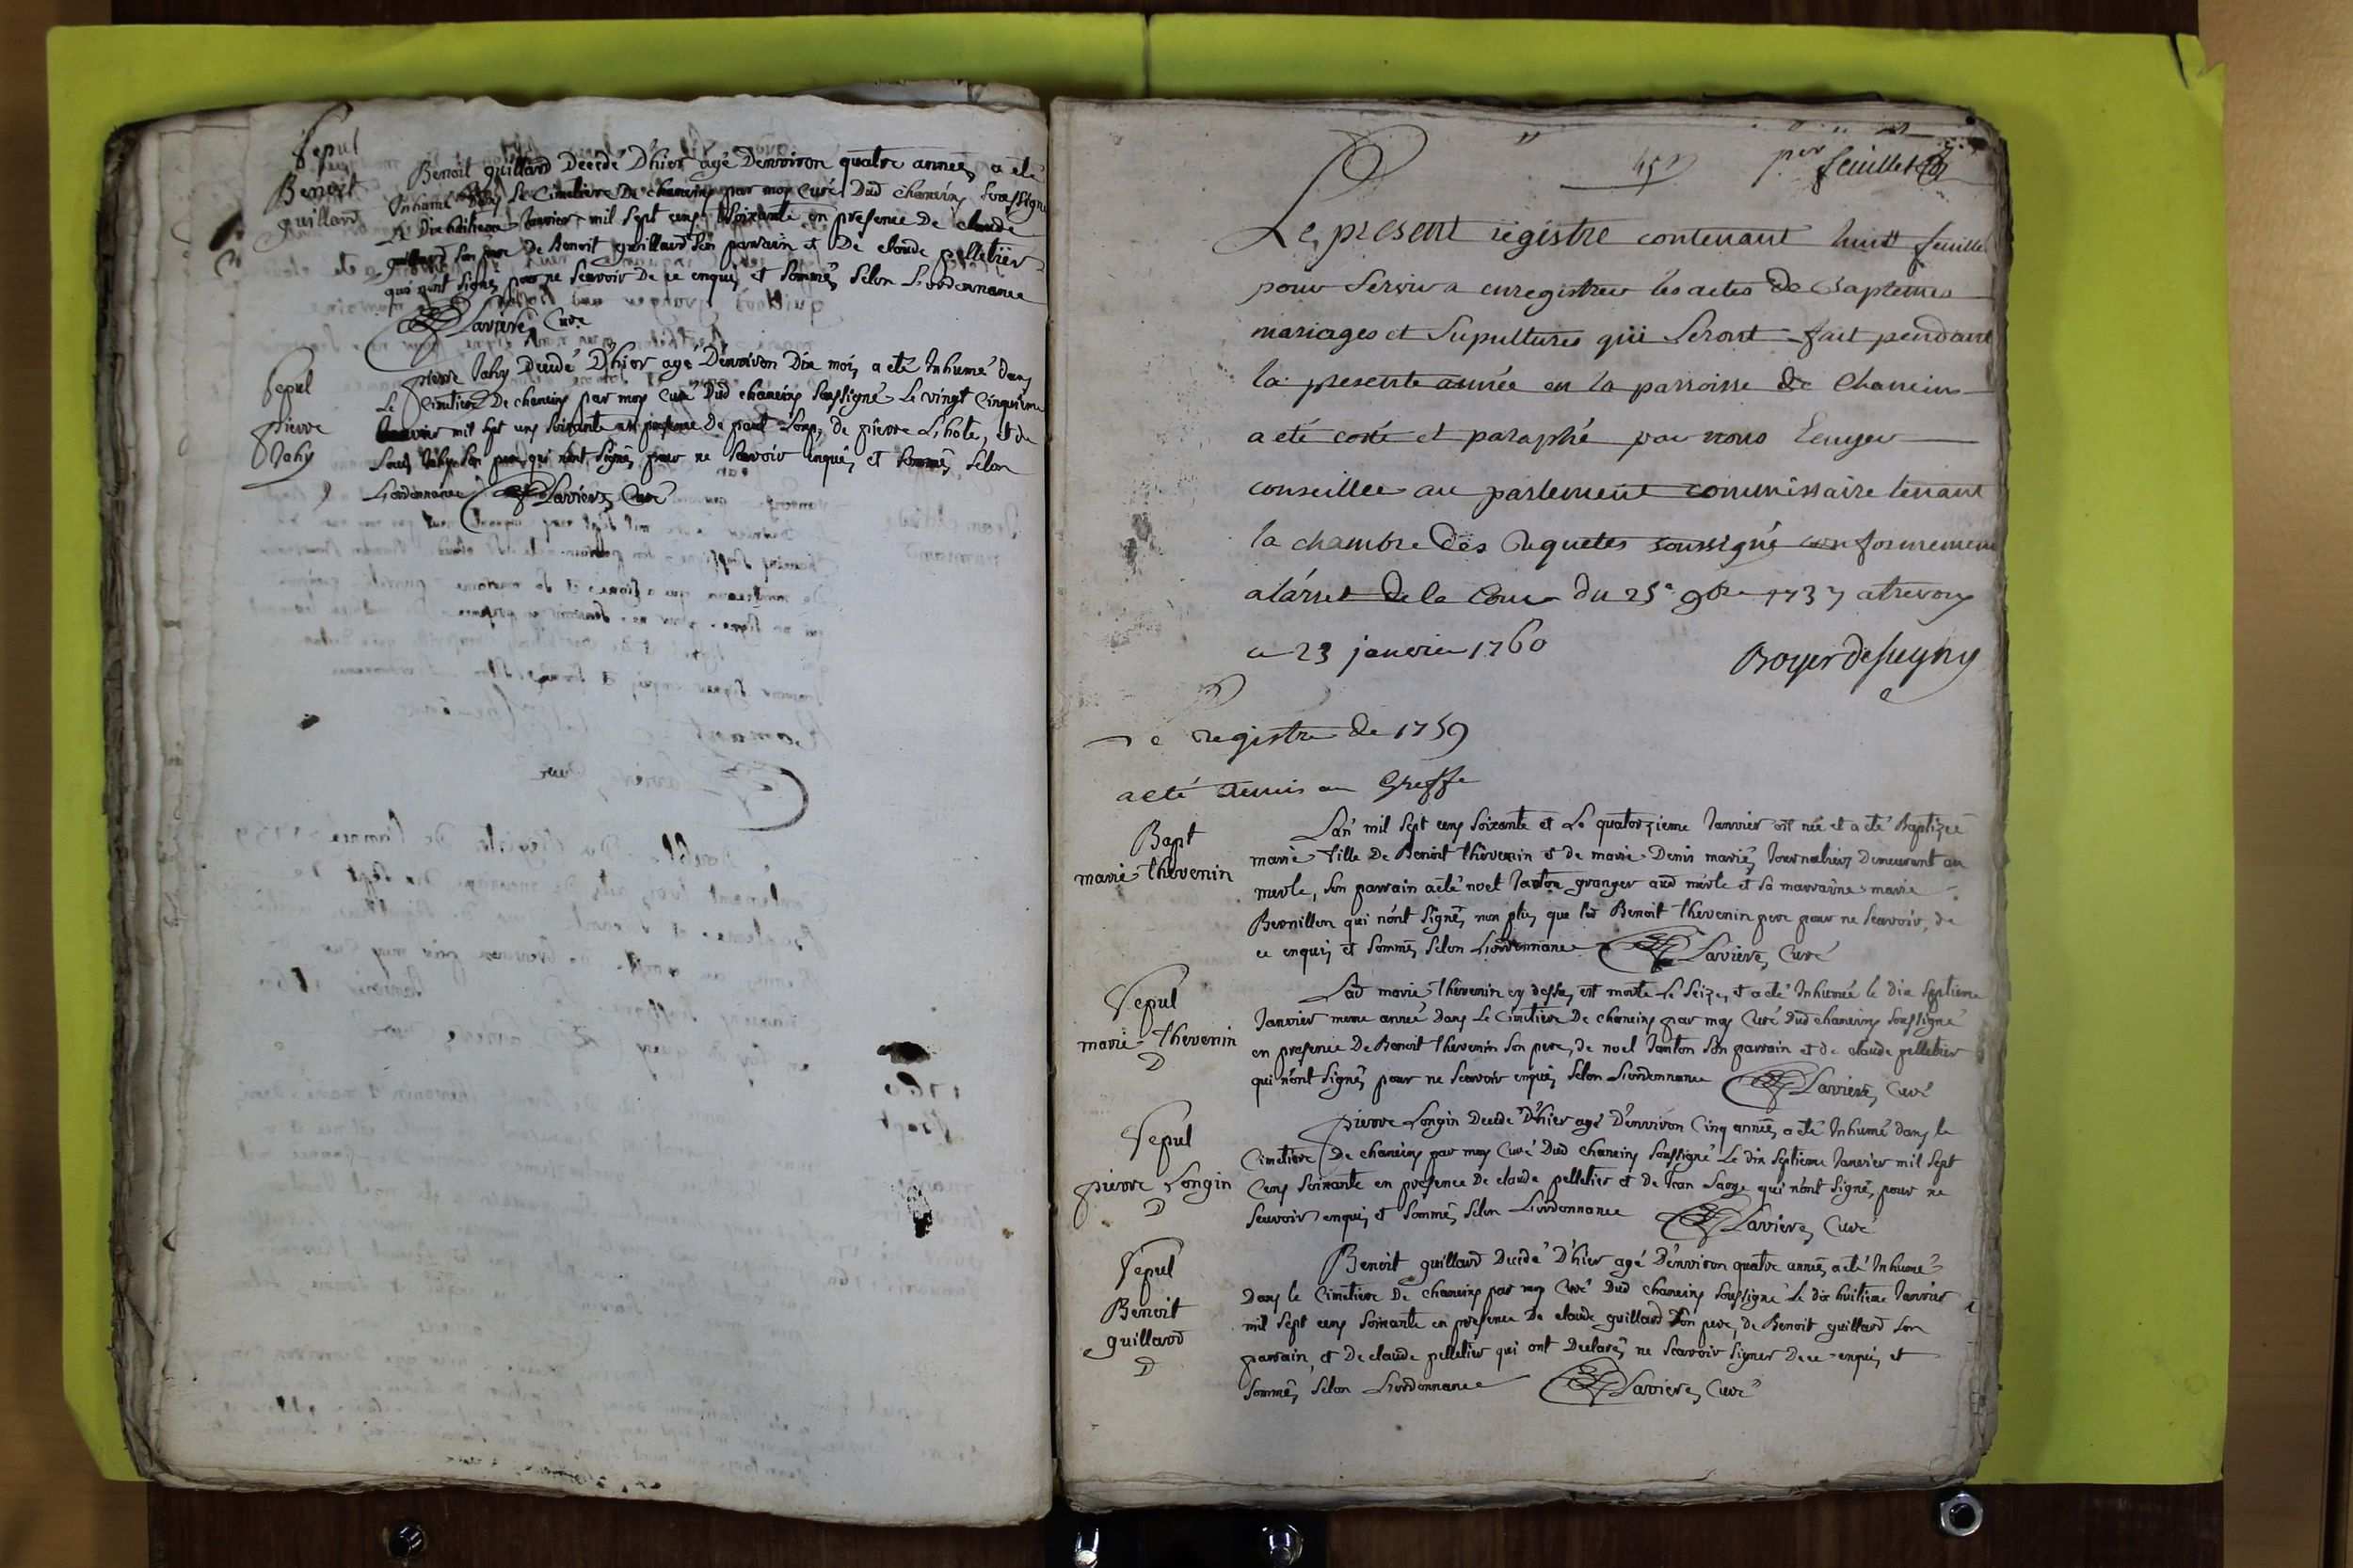 Sepul
Benoit
guillard
Benoit guillard Decedé D'hier agé Denviron quatre années, a eté
Inhumé dans Le Cimetiere De chaneins par moy Curé Dud chaneins soussigné
Le Dix huitieme Janvier mil sept cens soixante en presence De claude
guillard son pere De Benoit guillard son parrain et De claude pelletier
qui n'ont signés pour ne scavoir De ce enquis et sommés selon L'ordonnance
Laviere, Curé
Sepul
pierre
Jahy
pierre Jahy Decedé D'hier agé Denviron Dix mois a eté Inhumé dans
Le Cimetiere De chaneins par moy Curé Dud chaneins soussigné Le vingt Cinquieme
Janvier mil sept cens soixante en presence De paul Long, de pierre Lihote, et de
Jahy son pere qui n'ont signés pour ne scavoir enquis et sommés selon
L'ordonnance Laviere, Curé
per feuillet
Le present registre contenant huit feuille
pour servir a enregistrer les actes de Baptemes
mariages et Sepultures qui seront fait pendant
la presente année en la parroisse de Chaneins
a eté coté et paraphé par nous Ecuyer
conseiller au parlement commissaire tenant
la chambre des Requetes soussigné conformement
a l'arret de la Cour du 25e 9bre 1737 a trevoux
ce 23 janvier 1760
Boyer de sugny
Le Registre de 1759
a eté Remis au Greffe
Bapt
marie thevenin
L'an mil sept cens soixante et Le quatorzieme Janvier est née et a eté Baptizée
marie fille De Benoit thevenin et de marie Denis mariés Journaliers Demeurant au
merle, son parrain a eté noel Janton granger aud merle et sa marraine marie
Bernillon qui n'ont signés non plus que led Benoit thevenin pere pour ne scavoir, de
ce enquis et sommés selon L'ordonnance Laviere, Curé
Sepul
marie thevenin
D
Lad marie thevenin cy dessus est morte Le seize, et a eté Inhumée le dix septieme
Janvier meme année dans Le Cimetiere De chaneins par moy Curé Dud chaneins soussigné
en presence De Benoit thevenin son pere, de noel Janton son parrain et de claude pelletier
qui n'ont signés pour ne scavoir enquis selon L'ordonnance Laviere, Curé
Sepul
pierre Longin
D
pierre Longin Decedé D'hier agé D'environ Cinq années, a eté Inhumé dans le
Cimetiere De chaneins par moy Curé Dud chaneins soussigné Le dix septieme Janvier mil sept
Cens soixante en presence De claude pelletier et de Jean qui n'ont signés pour ne
scavoir enquis et sommés selon L'ordonnance Laviere, Curé
Sepul
Benoit
guillard
D
Benoit guillard Decedé D'hier agé D'environ quatre années, a eté Inhumé
Dans le Cimetiere De chaneins par moy Curé Dud chaneins soussigné Le dix huitieme Janvier
mil sept cens soixante en presence De claude guillard son pere, de Benoit guillard son
parrain, et De claude pelletier qui ont Declarés ne scavoir signer De ce enquis et
sommés selon L'ordonnance Laviere, Curé